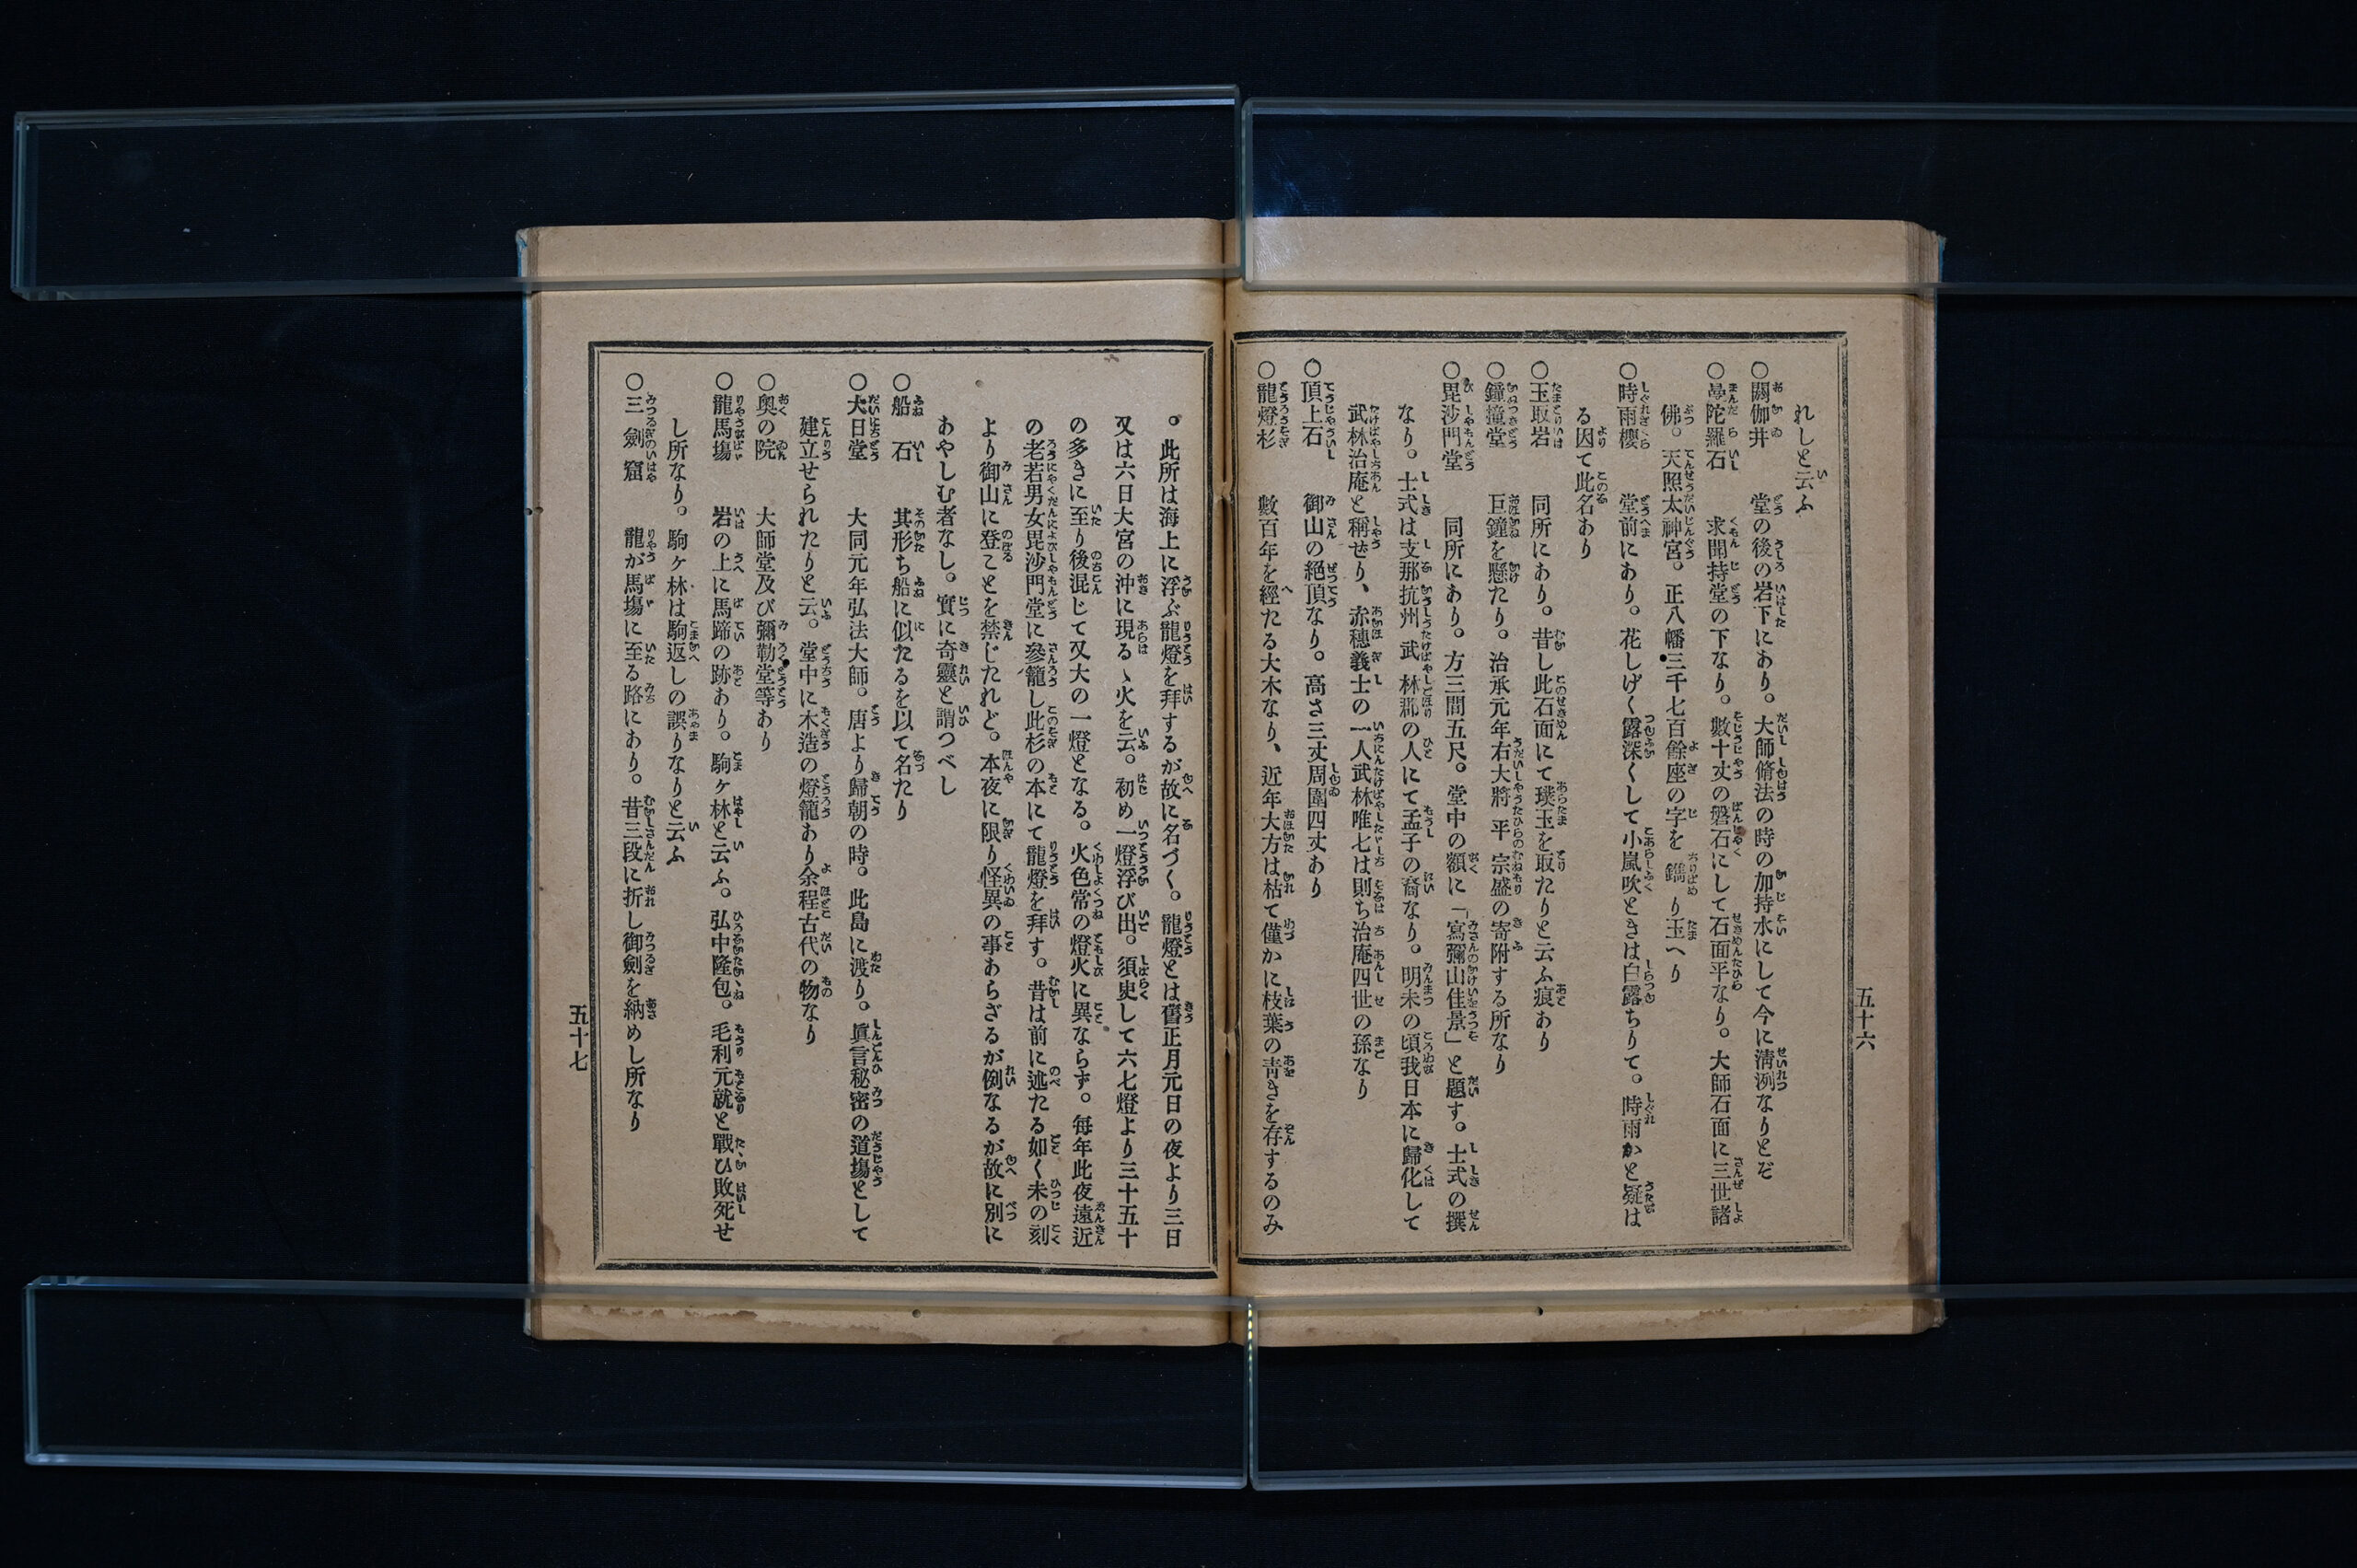 五十六
れしと云ふ
○閼伽井　堂の後の岩下にあり。大師脩法の時の加持水にして今に淸洌なりとぞ
○曼陀羅石　求聞持堂の下なり。數十丈の磐石にして石面平なり。大師石面に三世諸
佛。天照太神宮。正八幡三千七百餘座の字を鐫り玉へり
○時雨櫻　堂前にあり。花しげく露深くして小嵐吹ときは白露ちりて。時雨かと疑は
る因て此名あり
○玉取岩　同所にあり。昔し此石面にて璞玉を取たりと云ふ痕あり
○鐘撞堂　巨鐘を懸たり。治承元年右大將平宗盛の寄附する所なり
○毘沙門堂　同所にあり。方三間五尺。堂中の額に「寫彌山佳景」と題す。士式の撰
なり。士式は支那抗州武林郡の人にて孟子の裔なり。明末の頃我日本に歸化して
武林治庵と稱せり、赤穗義士の一人武林唯七は則ち治庵四世の孫なり
○頂上石　御山の絕頂なり。高さ三丈周圍四丈あり
○龍燈杉　數百年を經たる大木なり、近年大方は枯て僅かに枝葉の靑きを存するのみ
。此所は海上に浮ぶ龍燈を拜するが故に名づく。龍燈とは舊正月元日の夜より三日
又は六日大宮の沖に現るゝ火を云。初め一燈浮び出。須臾して六七燈より三十五十
の多きに至り後混じて又大の一燈となる。火色常の燈火に異ならず。每年此夜遠近
の老若男女毘沙門堂に參籠し此杉の本にて龍燈を拜す。昔は前に述たる如く未の刻
より御山に登ことを禁じたれど。本夜に限り怪異の事あらざるが例なるが故に別に
あやしむ者なし。實に奇靈と謂つべし
○船石　其形ち船に似たるを以て名たり
○大日堂　大同元年弘法大師。唐より歸朝の時。此島に渡り。眞言秘密の道塲として
建立せられたりと云。堂中に木造の燈籠あり余程古代の物なり
○奧の院　大師堂及び彌勒堂等あり
○龍馬塲　岩の上に馬蹄の跡あり。駒ヶ林と云ふ。弘中隆包。毛利元就と戰ひ敗死せ
し所なり。駒ヶ林は駒返しの誤りなりと云ふ
○三劍窟　龍が馬塲に至る路にあり。昔三段に折し御劍を納めし所なり
五十七